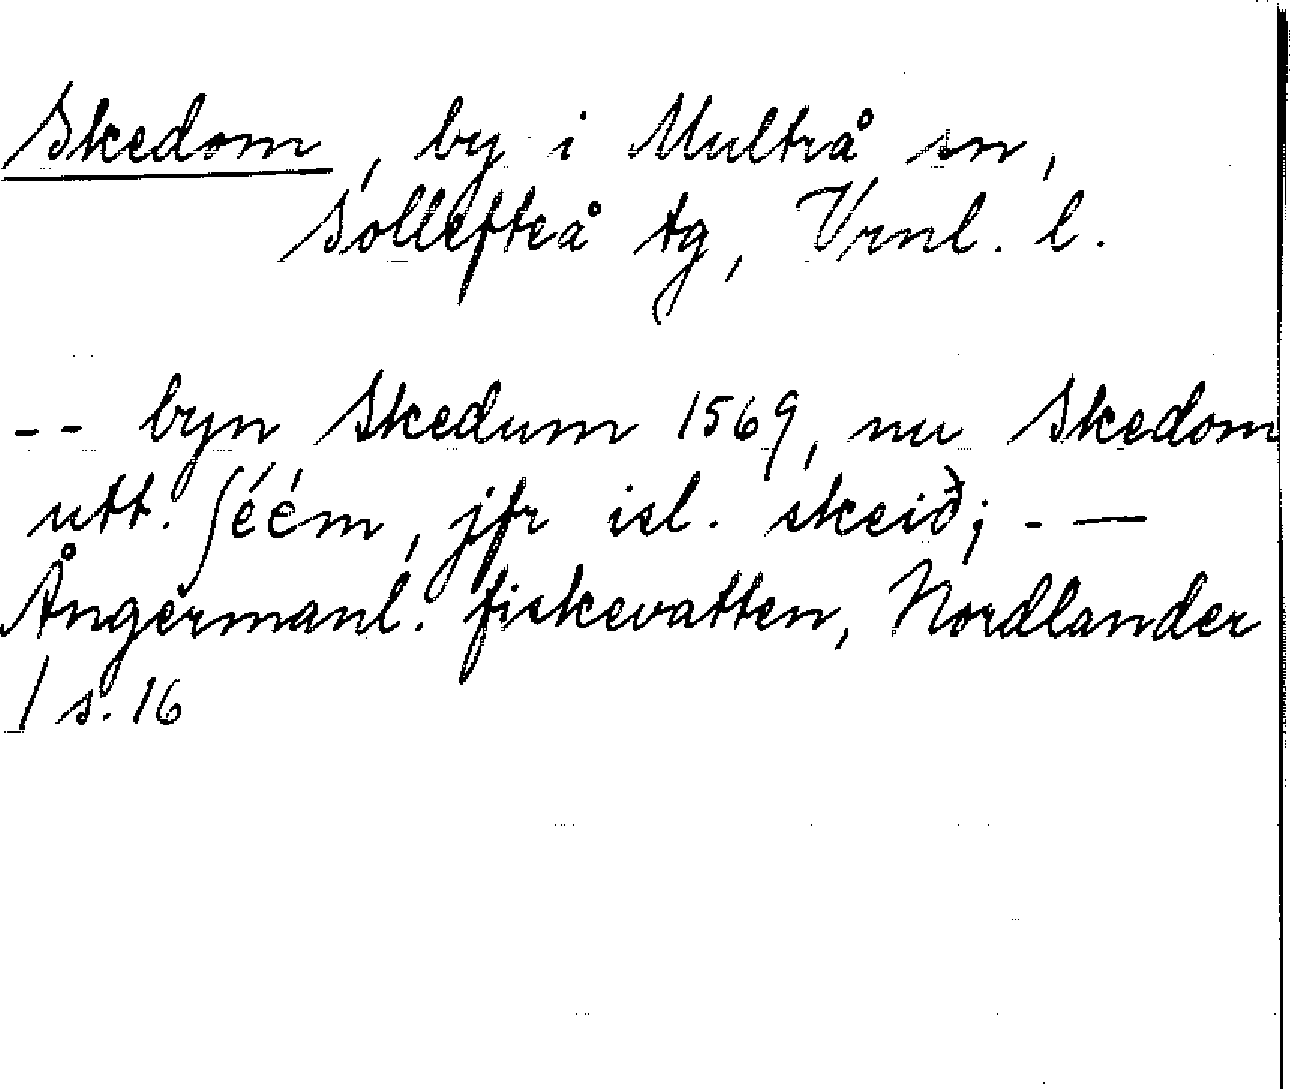 Skedom, by i Multrå sn,
Sollefteå tg, Vrnl. l.
-- byn Skedum 1569, nu Skedom
utt. ʃéém, jfr isl. skeið; - —
Ångermanl. fiskevatten, Nordlander
/ s. 16